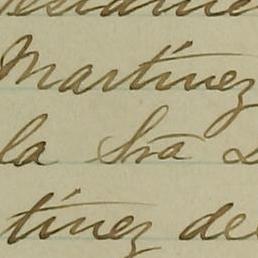 Martínez
la Sra
tínez de